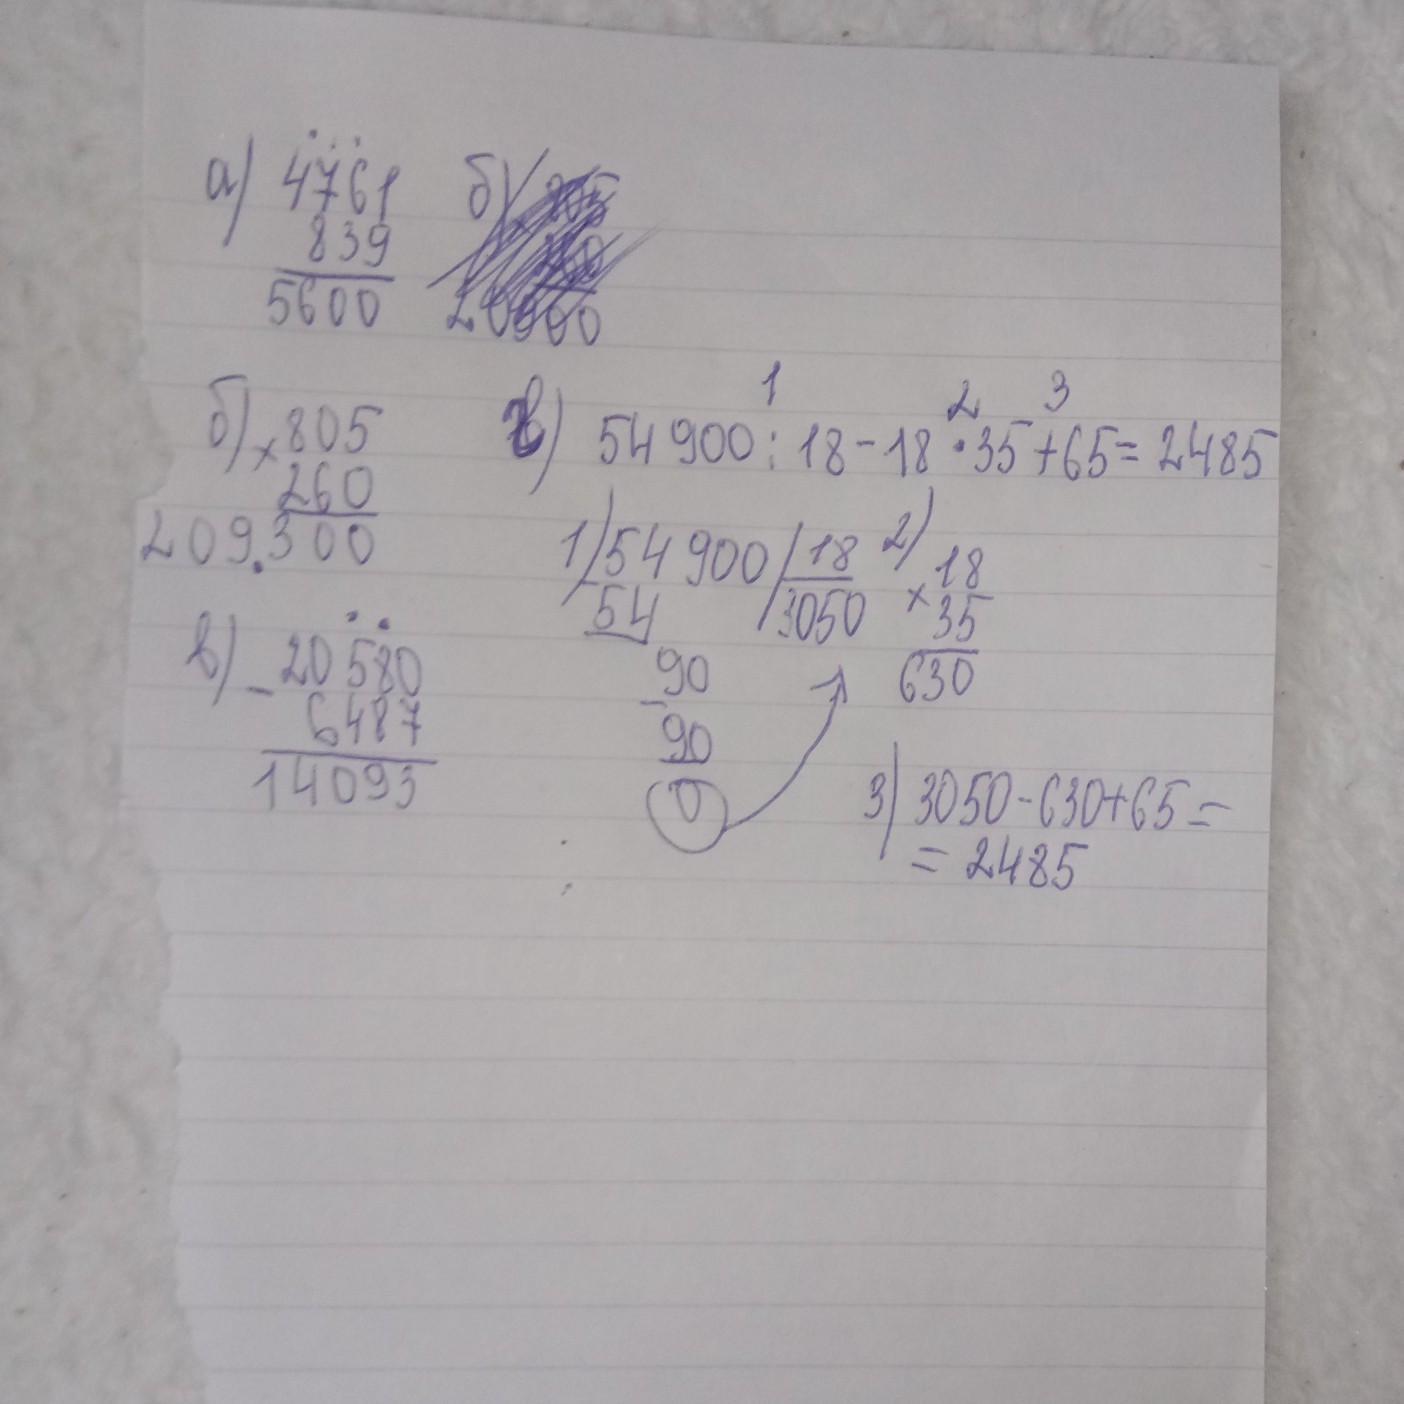 а) 4761
839
5600
б)
б) × 805
260
209.300
в) - 20580
6487
14093
в) 54 900 : 18 - 18 · 35 + 65 = 2485
1 2 3
1) 54 900 | 18
54 3050
90
- 90
0
2) × 18
35
630
3) 3050 - 630 + 65 =
= 2485